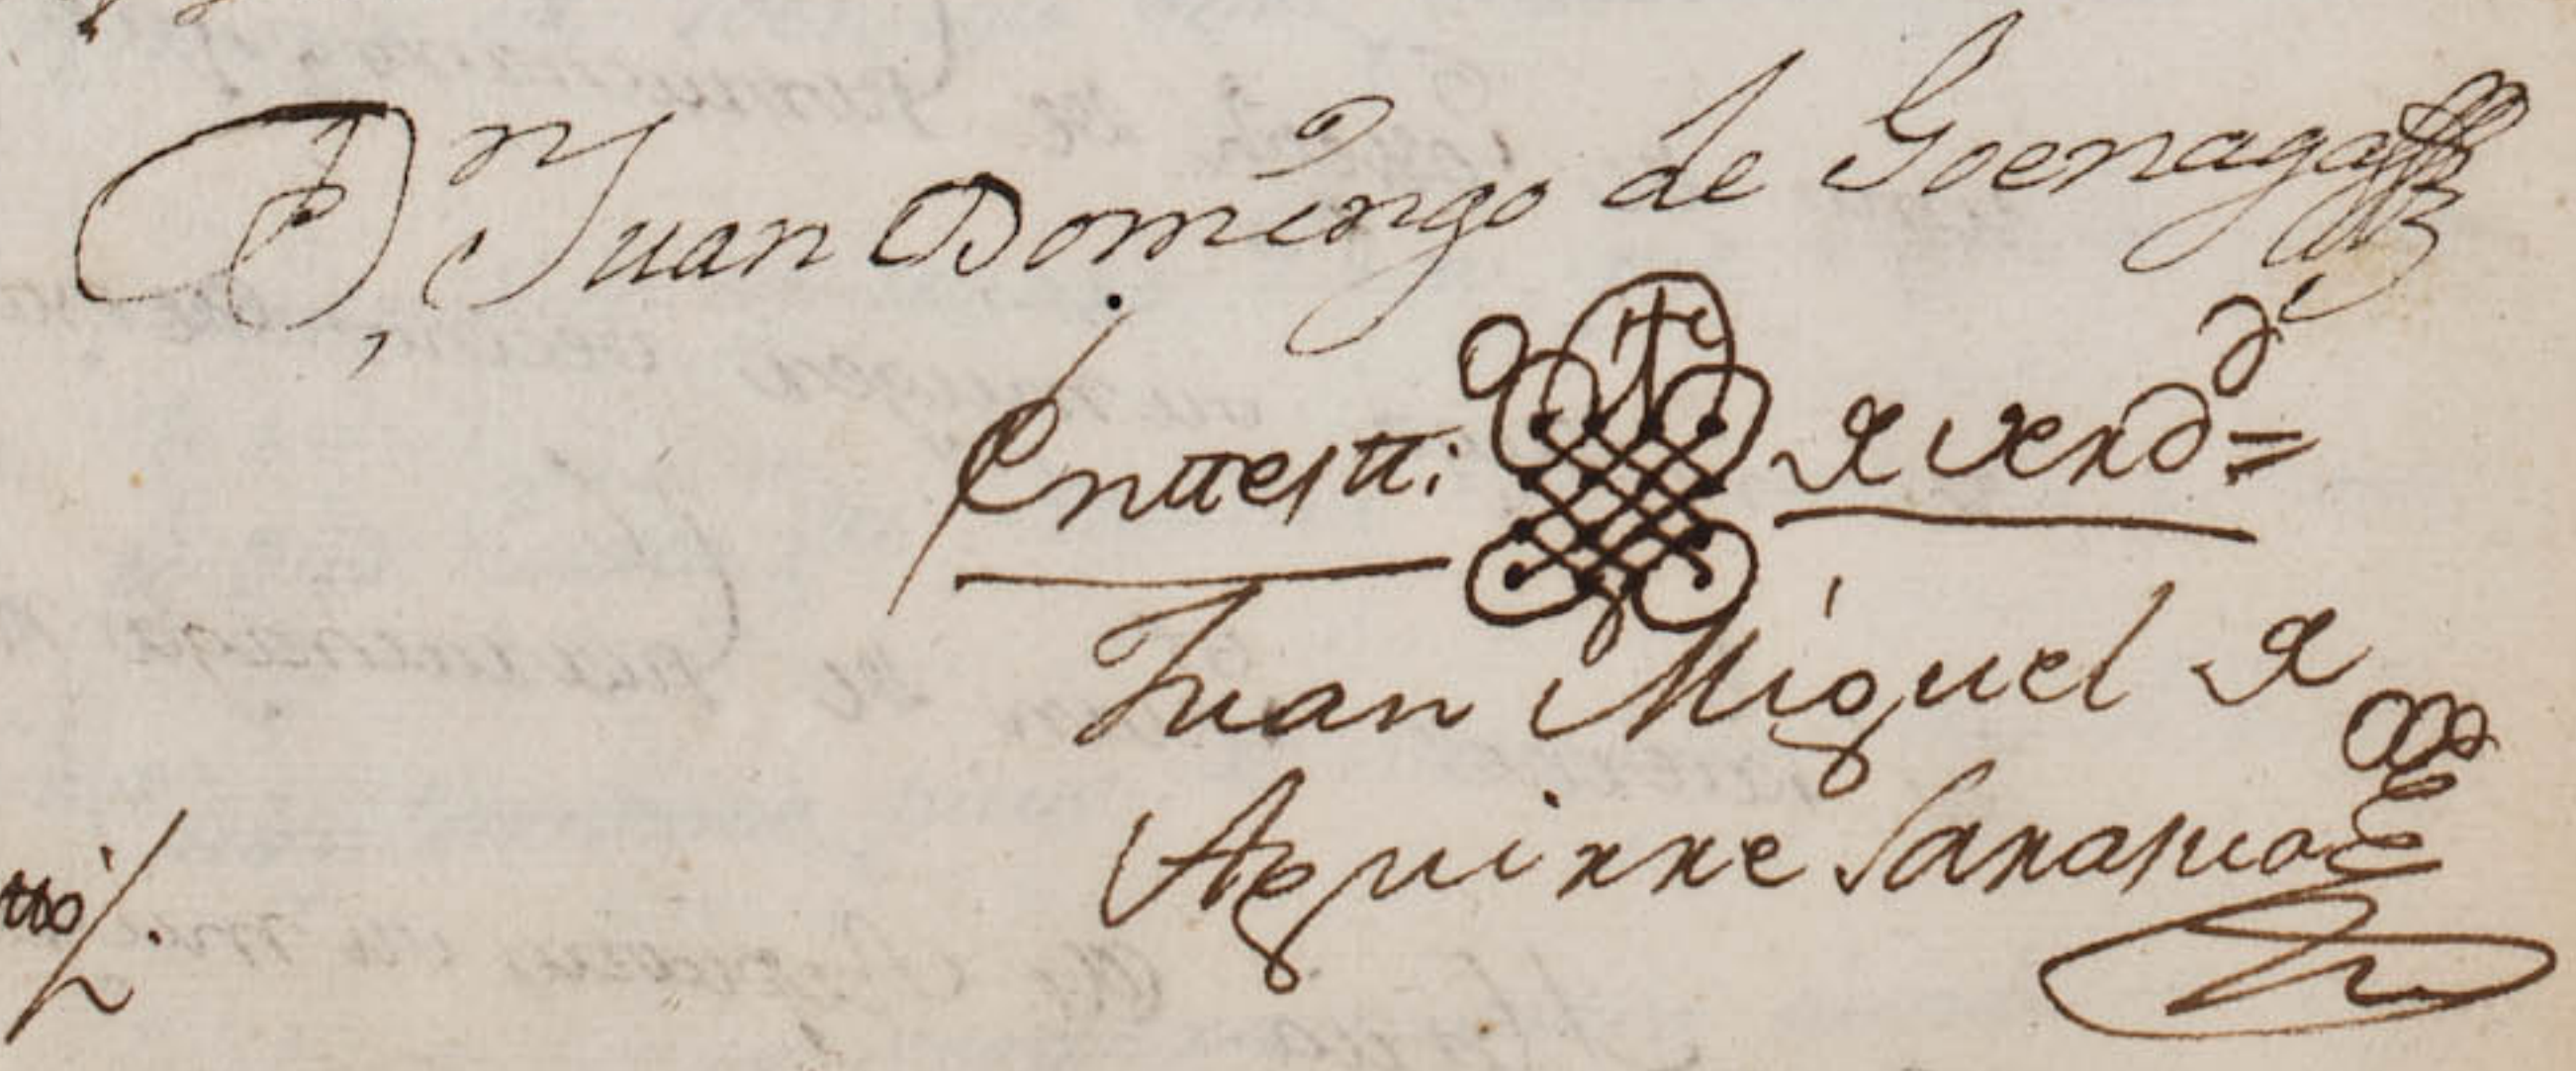 Dn Juan Domingo de Goenaga
En ttestt: de verdd=
Juan Miguel de
Aguirre Sarasua
tto